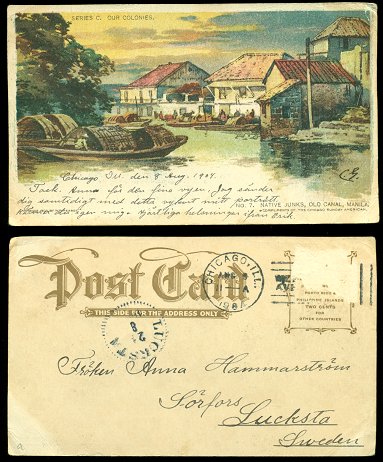 SERIES C. OUR COLONIES.
Chicago Ill. den 8 Aug. 1904.
Tack Anna för den fina vyen, Jag sänder
dig samtidigt med detta vykort mitt porträtt.
Hjärtliga helsningar ifrån Erik
No. 7. NATIVE JUNKS, OLD CANAL, MANILA.
COMPLIMENTS OF THE CHICAGO SUNDAY AMERICAN.
Post Card
THIS SIDE FOR THE ADDRESS ONLY
CHICAGO, ILL.
PORTO RICO &
PHILIPPINE ISLANDS
TWO CENTS
FOR
OTHER COUNTRIES
LUCKSTA
Fröken Anna Hammarström
Sörfors
Lucksta
Sweden